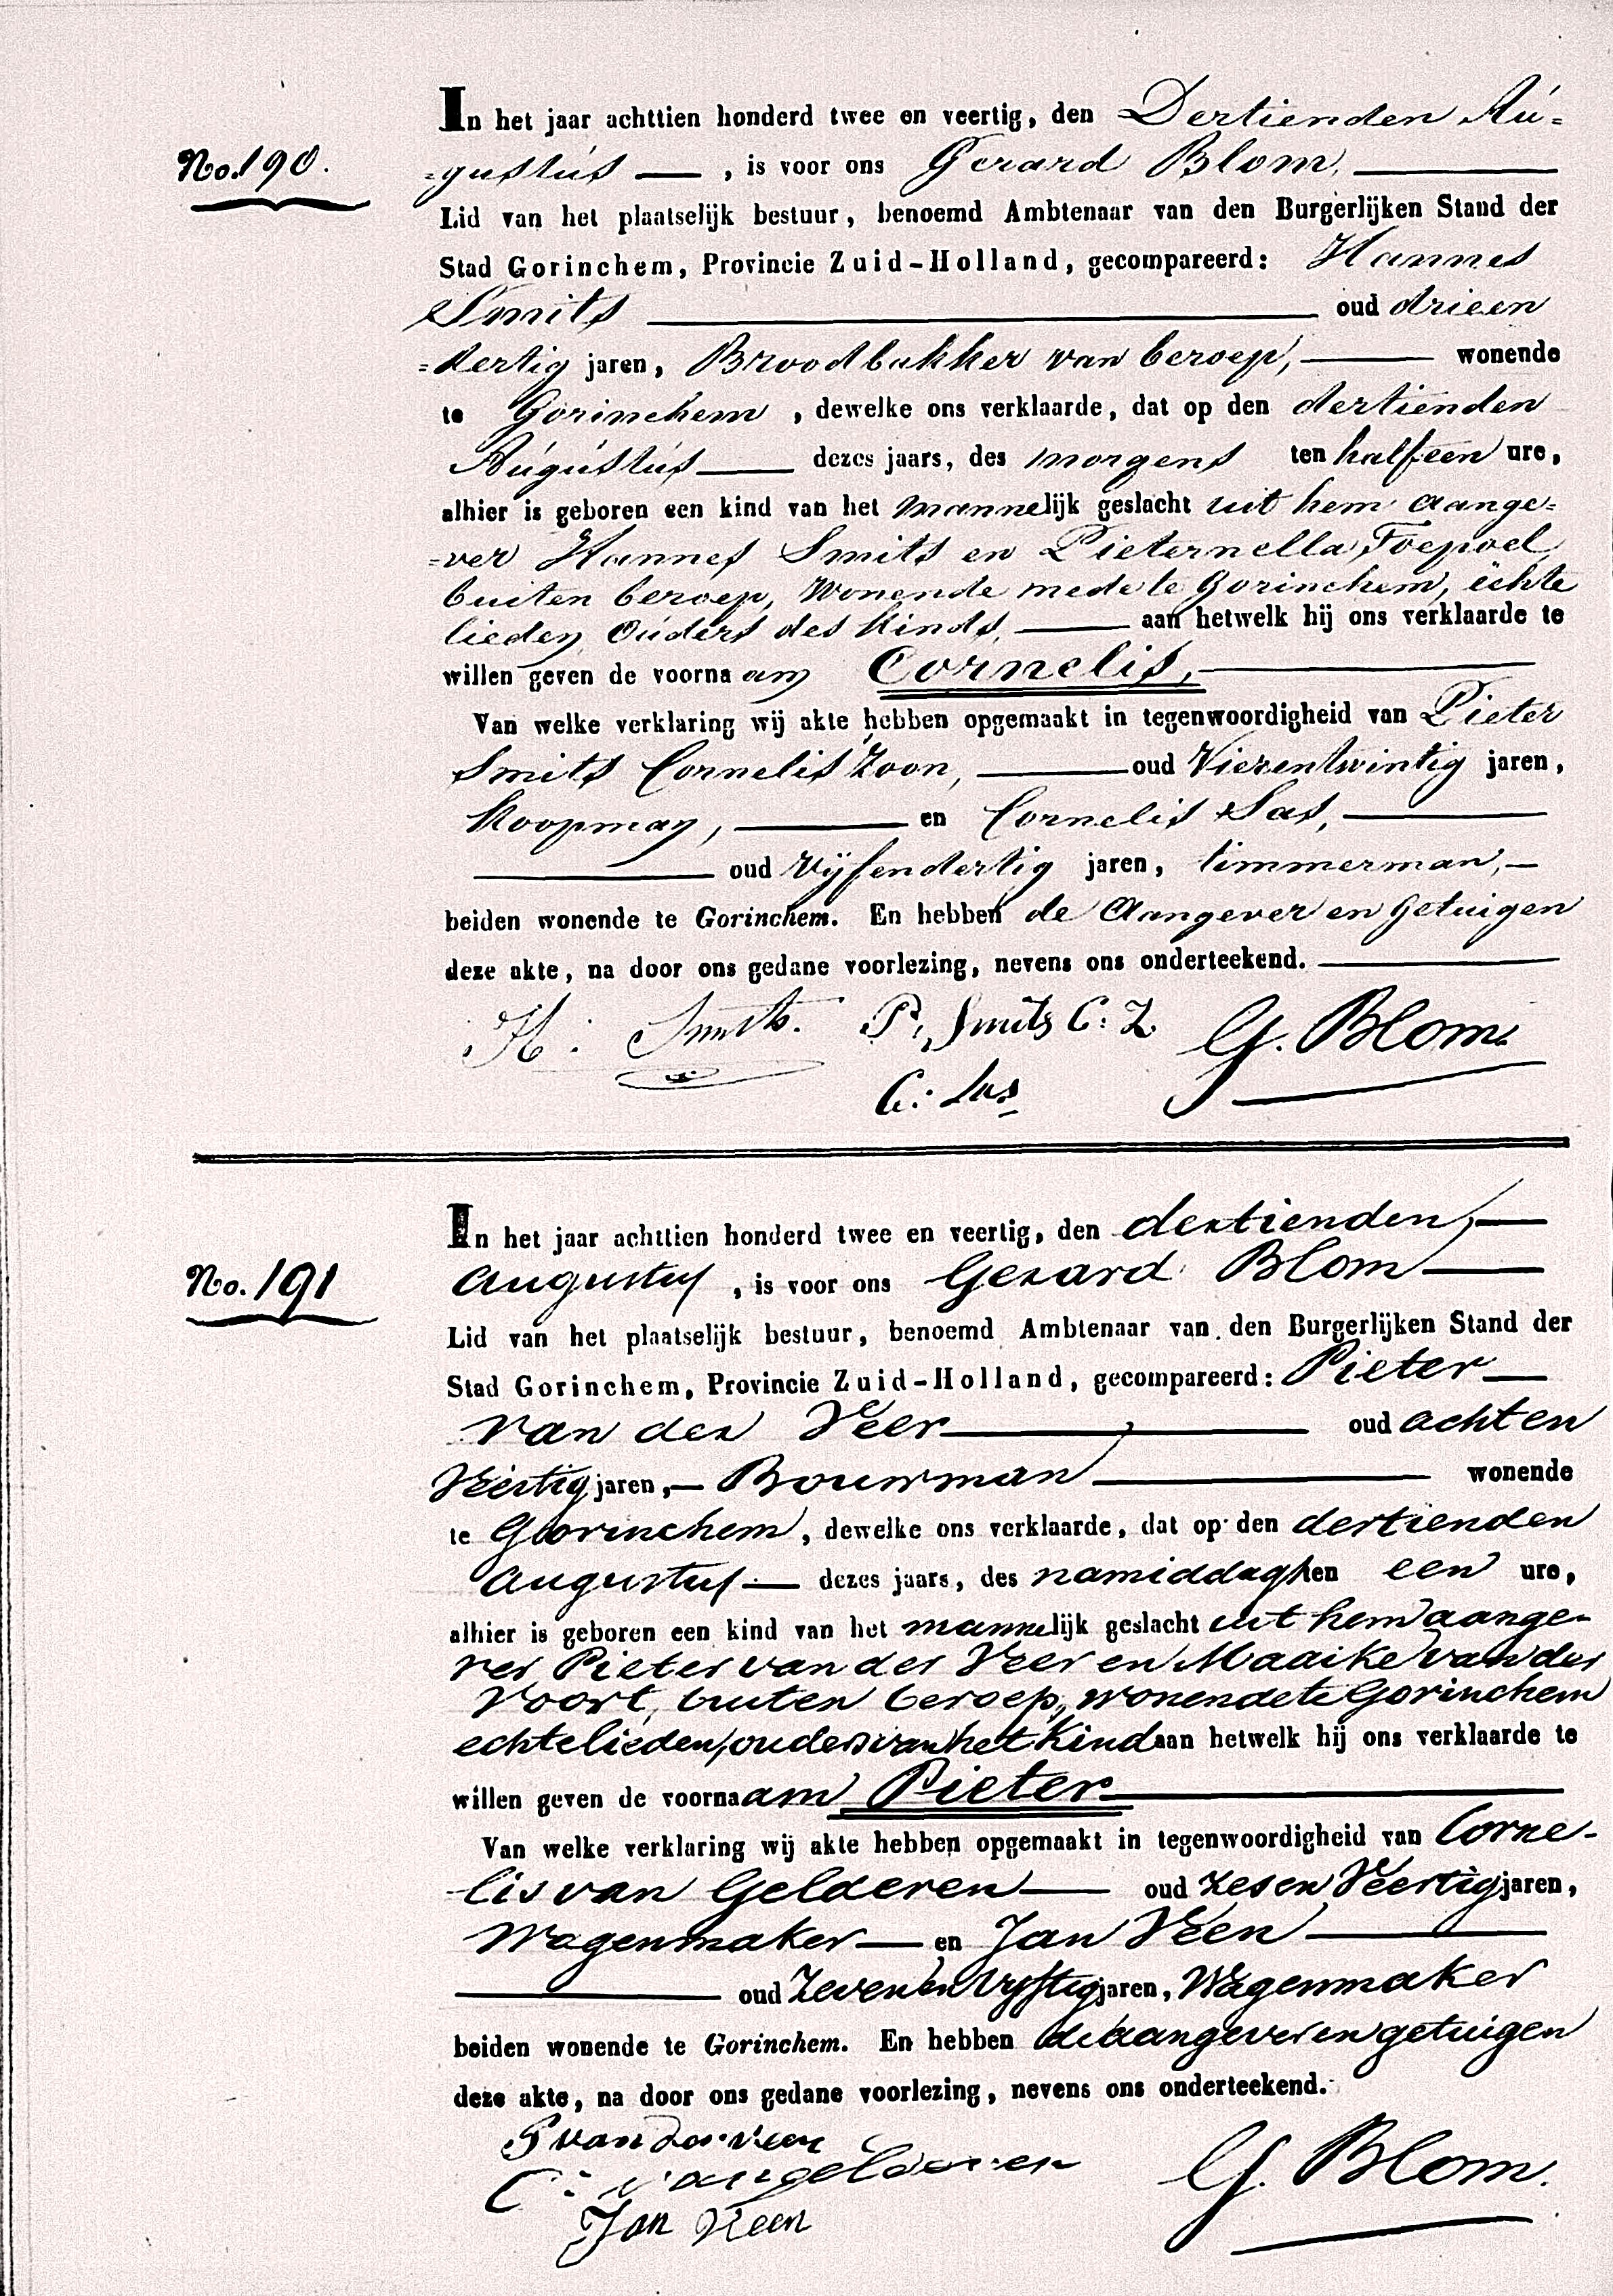 In het jaar achttien honderd twee en veertig, den Dertienden Au=
No. 190.
=gustus — , is voor ons Gerard Blom, —
Lid van het plaatselijk bestuur, benoemd Ambtenaar van den Burgerlijken Stand der
Stad Gorinchem, Provincie Zuid-Holland, gecompareerd: Hannes
Smits — oud drieen
=dertig jaren, Broodbakker van beroep, — wonende
te Gorinchem , dewelke ons verklaarde, dat op den dertienden
Augustus — dezes jaars, des morgens ten half een ure,
alhier is geboren een kind van het mannelijk geslacht uit hem aange=
=ver Hannes Smits en Pieternella Toepoel,
buiten beroep, Wonende mede te Gorinchem, echte
lieden Ouders des Kinds, — aan hetwelk hij ons verklaarde te
willen geven de voornaam Cornelis, —
Van welke verklaring wij akte hebben opgemaakt in tegenwoordigheid van Pieter
Smits Cornelis Zoon, — oud Vierentwintig jaren,
Koopman, — en Cornelis Sas, —
— oud Vijfendertig jaren, timmerman, —
beiden wonende te Gorinchem. En hebben de Aangever en Getuigen
deze akte, na door ons gedane voorlezing, nevens ons onderteekend. —
H: Smits. P. Smits C: Z. G. Blom.
C: Sas
In het jaar achttien honderd twee en veertig, den dertienden, —
No. 191
Augustus , is voor ons Gerard Blom —
Lid van het plaatselijk bestuur, benoemd Ambtenaar van den Burgerlijken Stand der
Stad Gorinchem, Provincie Zuid-Holland, gecompareerd: Pieter —
van der Veer — oud achten
Veertig jaren, — Bouwman — wonende
te Gorinchem, dewelke ons verklaarde, dat op den dertienden
Augustus — dezes jaars, des namiddags ten een ure,
alhier is geboren een kind van het mannelijk geslacht uit hem aange-
ver Pieter van der Veer en Maaike van der
Voort, buiten beroep, wonende te Gorinchem
echtelieden, ouders van het Kind aan hetwelk hij ons verklaarde te
willen geven de voornaam Pieter —
Van welke verklaring wij akte hebben opgemaakt in tegenwoordigheid van Corne-
lis van Gelderen — oud Zes en Veertig jaren,
Wagenmaker — en Jan Veen —
— oud Zeven en Vyftig jaren, Wagenmaker
beiden wonende te Gorinchem. En hebben de aangever en getuigen
deze akte, na door ons gedane voorlezing, nevens ons onderteekend.
P van der veer
C: van gelderen G. Blom.
Jan Veen